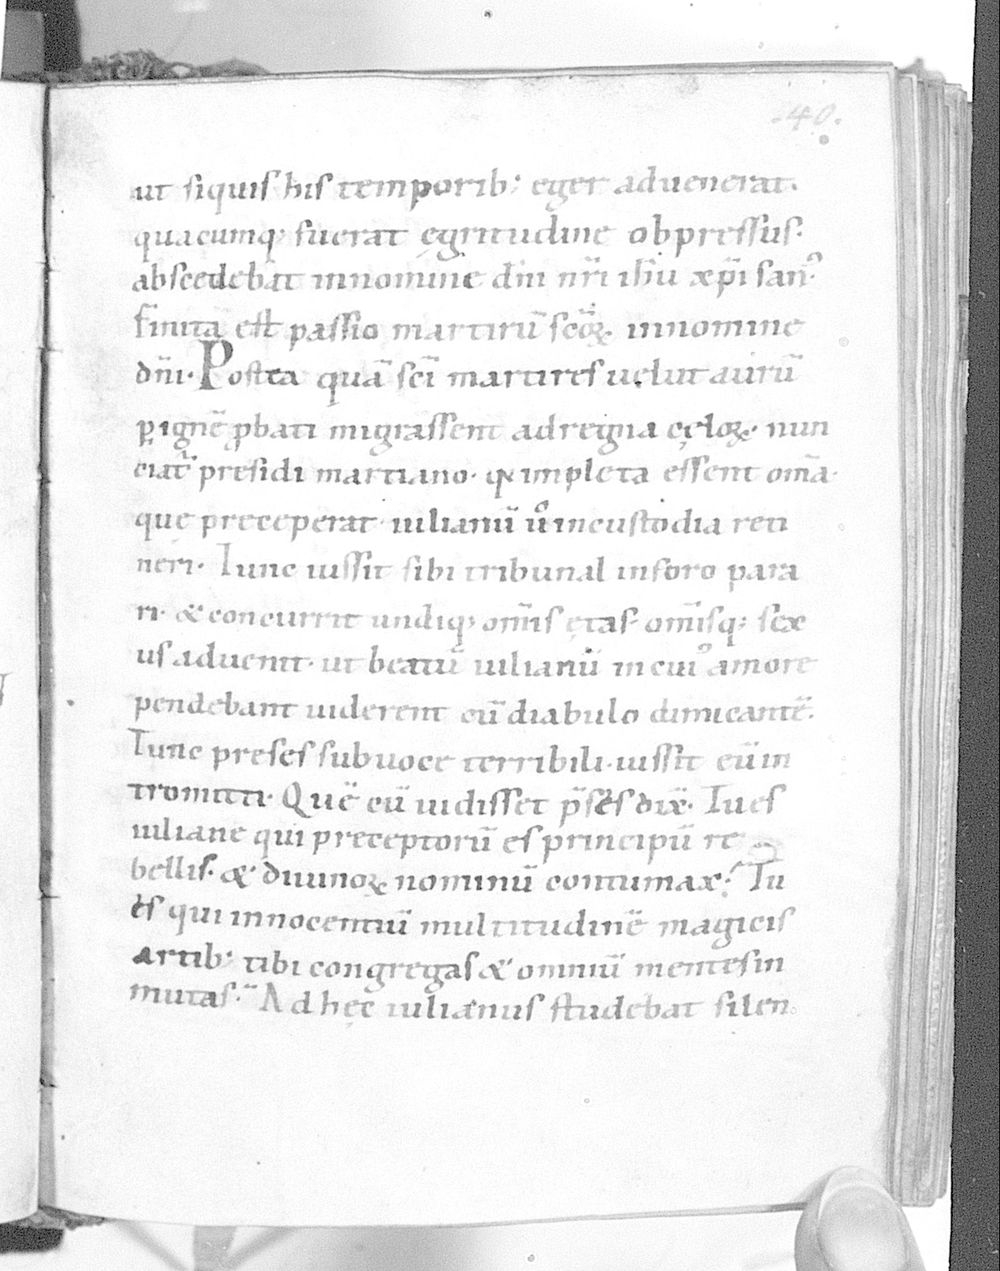 .40.
ut siquis his temporib; eger aduenerat.
quacumq; fuerat egritudine obpressus.
abscedebat innomine dñi nr̃i ihũ xp̃i san᷒.
Finita est passio martirũ scõꝝ innomine
dñi. Postea quã scĩ martires uelut aurũ
ꝑ ignẽ ꝓbati migrassent adregna cęloꝝ. nun
ciat᷒ presidi martiano. qđ impleta essent om̃a.
quę preceperat. iulianũ ů incustodia reti
neri. Tunc iussit sibi tribunal inforo para
ri. & concurrit undiq; om̃is ętas. om̃isq; sex
us aduenit. ut beatũ iulianũ incui᷒ amore
pendebant uiderent eũ diabulo dimicantẽ.
Tunc preses subuoce terribili. iussit eũ in
tromitti. Quẽ cũ uidisset p̃ses dix̃. Tu es
iuliane qui preceptorũ es principũ re
bellis. & diuinoꝝ nominũ contumax? Tu
es qui innocentiũ multitudinẽ magicis
artib; tibi congregas & omniũ mentes in
mutas. Ad hęc iulianus studebat silen